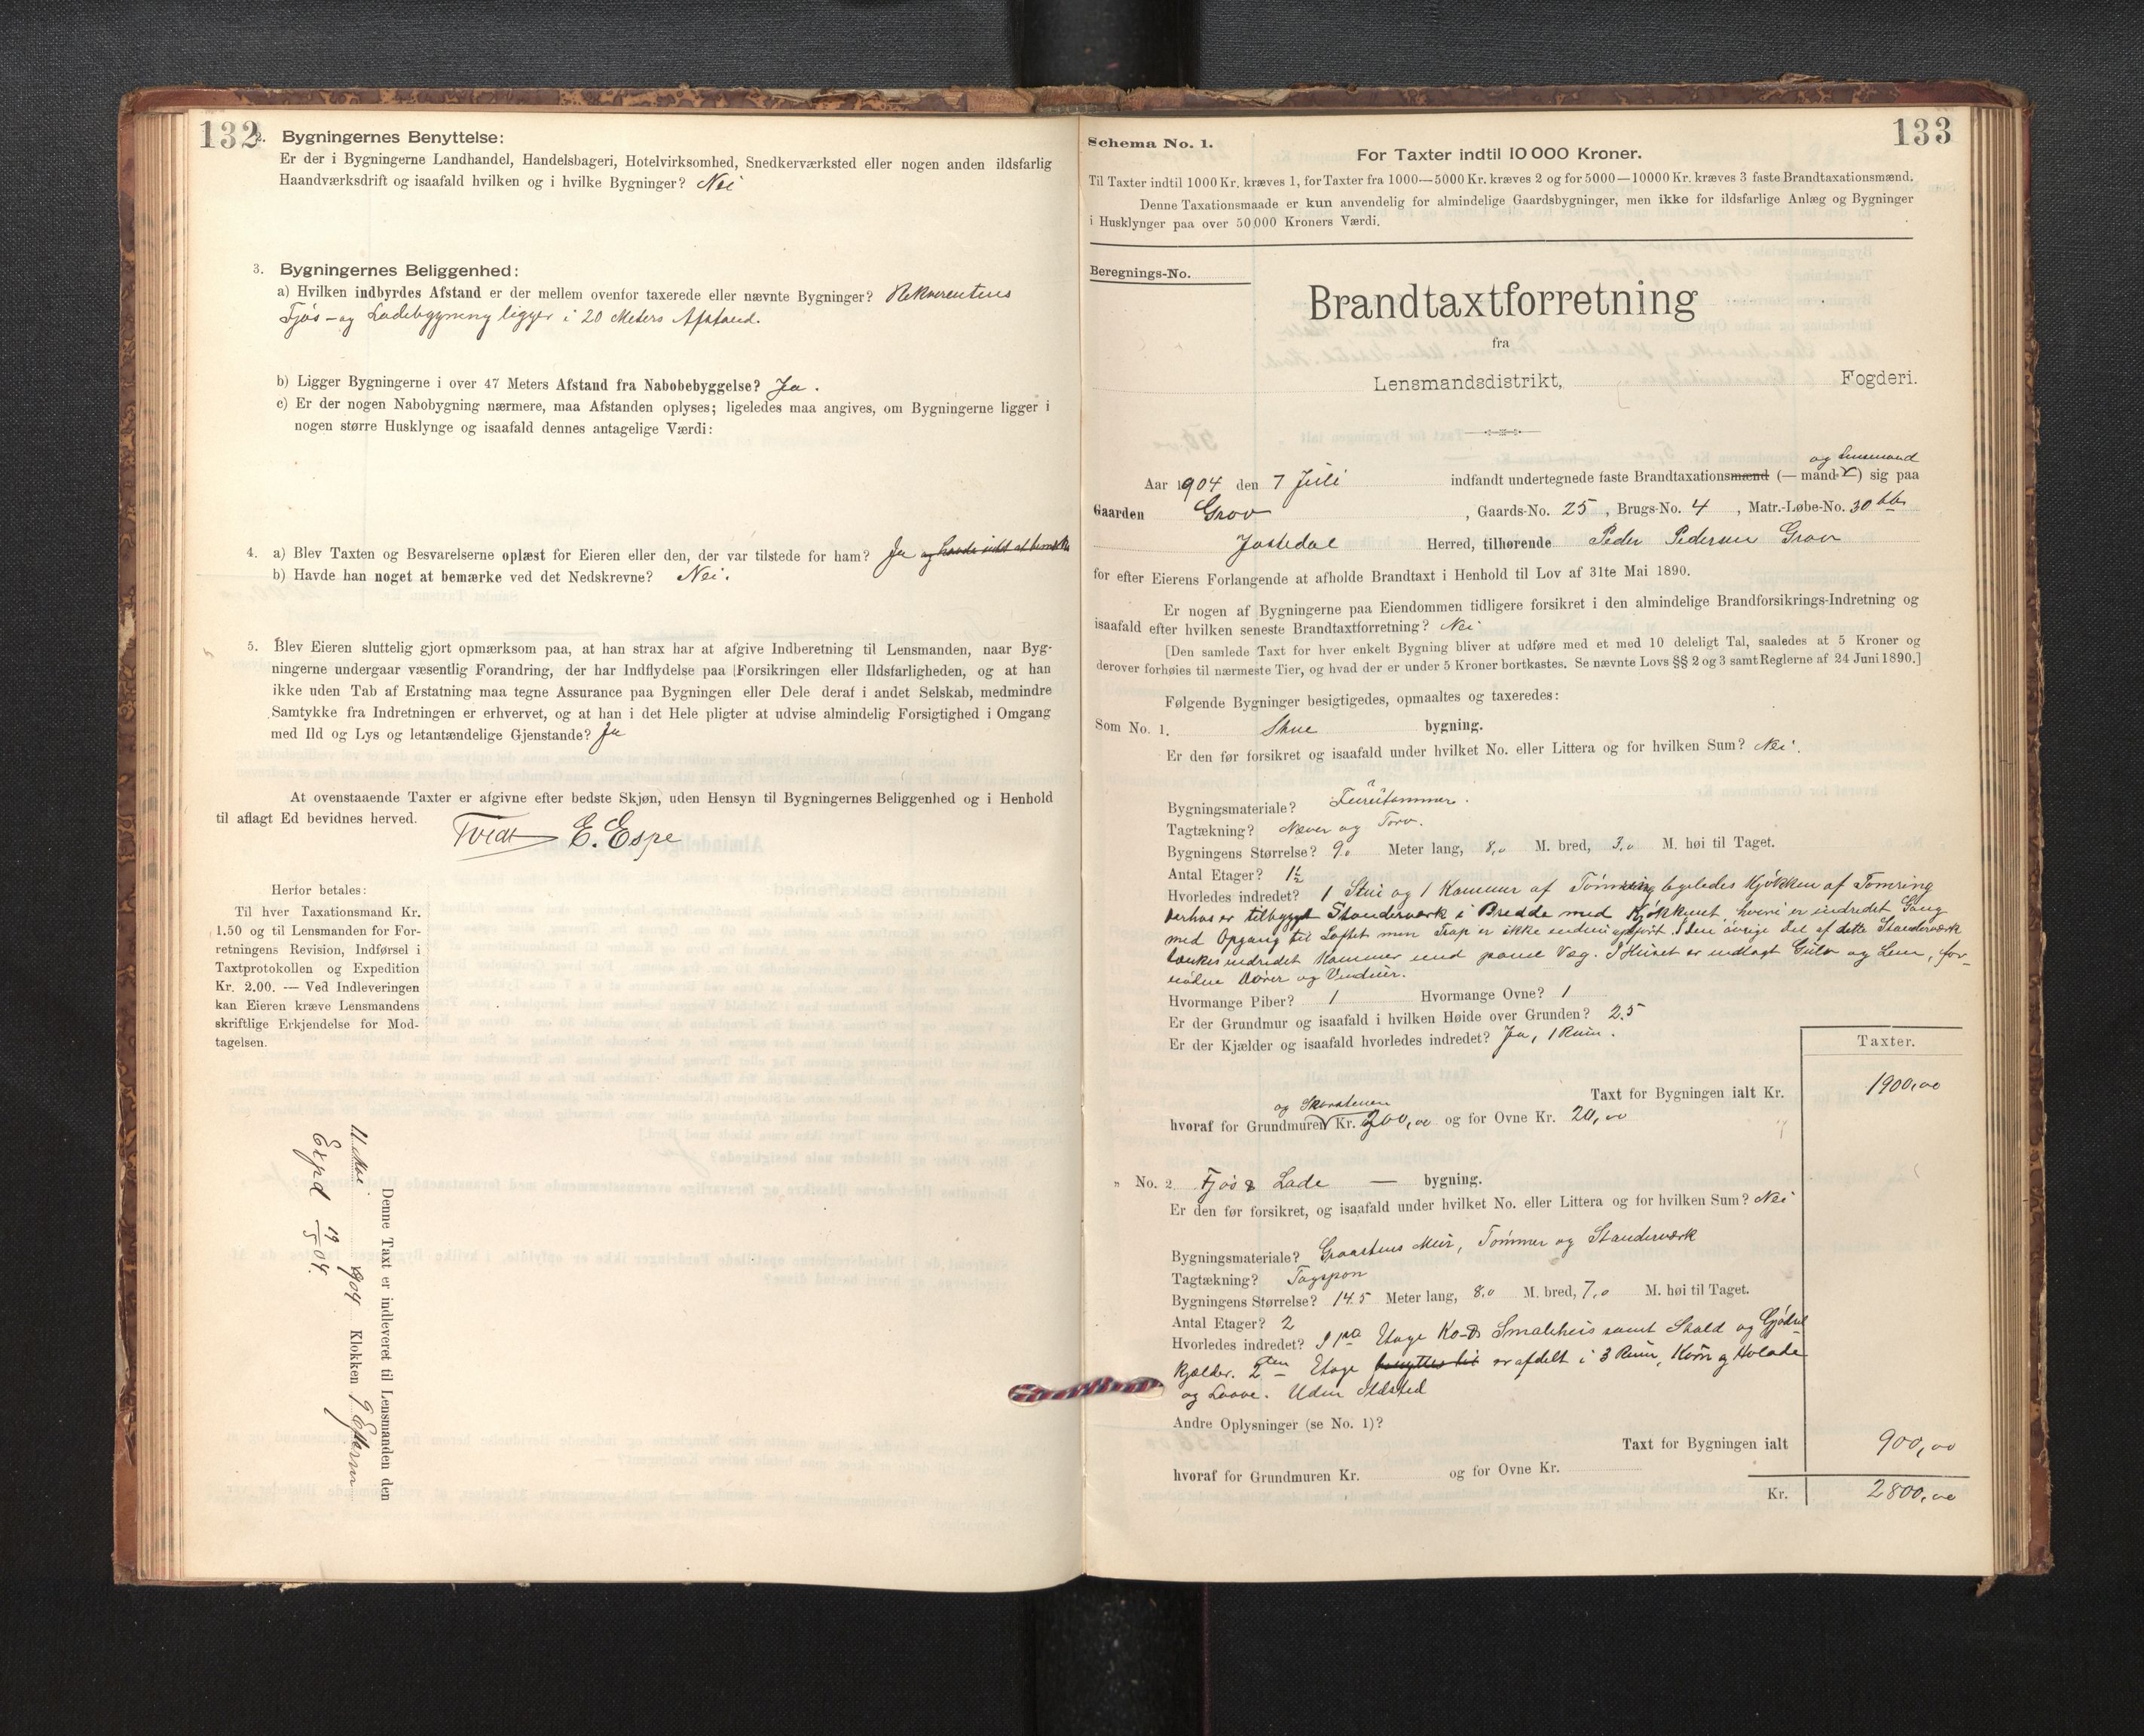 132
2. Bygningernes Benyttelse:
Er der i Bygningerne Landhandel, Handelsbageri, Hotelvirksomhed, Snedkerværksted eller nogen anden ildsfarlig
Haandværksdrift og isaafald hvilken og i hvilke Bygninger? Nei
3. Bygningernes Beliggenhed:
a) Hvilken indbyrdes Afstand er der mellem ovenfor taxerede eller nævnte Bygninger? Rekvirentens
Fjös- og Ladebygning ligger i 20 Meters Afstand.
b) Ligger Bygningerne i over 47 Meters Afstand fra Nabobebyggelse? Ja.
c) Er der nogen Nabobygning nærmere, maa Afstanden oplyses; ligeledes maa angives, om Bygningerne ligger i
nogen større Husklynge og isaafald dennes antagelige Værdi:
4. a) Blev Taxten og Besvarelserne oplæst for Eieren eller den, der var tilstede for ham? Ja og havde intet at bemærke
b) Havde han noget at bemærke ved det Nedskrevne? Nei.
5. Blev Eieren sluttelig gjort opmærksom paa, at han strax har at afgive Indberetning til Lensmanden, naar Byg-
ningerne undergaar væsentlig Forandring, der har Indflydelse paa Forsikringen eller Ildsfarligheden, og at han
ikke uden Tab af Erstatning maa tegne Assurance paa Bygningen eller Dele deraf i andet Selskab, medmindre
Samtykke fra Indretningen er erhvervet, og at han i det Hele pligter at udvise almindelig Forsigtighed i Omgang
med Ild og Lys og letantændelige Gjenstande? Ja
At ovenstaaende Taxter er afgivne efter bedste Skjøn, uden Hensyn til Bygningernes Beliggenhed og i Henhold
til aflagt Ed bevidnes herved.
E. Espe
Herfor betales:
Til hver Taxationsmand Kr.
1.50 og til Lensmanden for For-
retningens Revision, Indførsel i
Taxtprotokollen og Expedition
Kr. 2.00. — Ved Indleveringen
kan Eieren kræve Lensmandens
skriftlige Erkjendelse for Mod-
tagelsen.
Denne Taxt er indleveret til Lensmanden den
1904 Klokken 9 Efterm
Expd 19/5 04.
133
Schema No. 1.
For Taxter indtil 10 000 Kroner.
Til Taxter indtil 1000 Kr. kræves 1, for Taxter fra 1000—5000 Kr. kræves 2 og for 5000—10000 Kr. kræves 3 faste Brandtaxationsmænd.
Denne Taxationsmaade er kun anvendelig for almindelige Gaardsbygninger, men ikke for ildsfarlige Anlæg og Bygninger
i Husklynger paa over 50,000 Kroners Værdi.
Beregnings-No.
Brandtaxtforretning
fra
Lensmandsdistrikt, Fogderi.
og Lensmand
Aar 1904 den 7 Juli indfandt undertegnede faste Brandtaxationsmænd (— mand) sig paa
Gaarden Grov, Gaards-No. 25, Brugs-No. 4, Matr.-Løbe-No. 30
Jostedal Herred, tilhørende Peder Pedersen Grov
for efter Eierens Forlangende at afholde Brandtaxt i Henhold til Lov af 31te Mai 1890.
Er nogen af Bygningerne paa Eiendommen tidligere forsikret i den almindelige Brandforsikrings-Indretning og
isaafald efter hvilken seneste Brandtaxtforretning? Nei
[Den samlede Taxt for hver enkelt Bygning bliver at udføre med et med 10 deleligt Tal, saaledes at 5 Kroner og
derover forhøies til nærmeste Tier, og hvad der er under 5 Kroner bortkastes. Se nævnte Lovs §§ 2 og 3 samt Reglerne af 24 Juni 1890.]
Følgende Bygninger besigtigedes, opmaaltes og taxeredes:
Som No. 1. Stue bygning.
Er den før forsikret og isaafald under hvilket No. eller Littera og for hvilken Sum? Nei.
Bygningsmateriale? Furutömmer.
Tagtækning? Næver og Torv.
Bygningens Størrelse? 9,0 Meter lang, 8,0 M. bred, 3,0 M. høi til Taget.
Antal Etager? 1½
Hvorledes indredet? 1 Stue og 1 Kammer af Tömring ligeledes Kjökken af Tömring
Derhos er tilbygget Standerværk i Bredde med Kjökkenet, hvori er indredet Gang
med Opgang til Loftet men Trap er ikke endnu opfört. I den övrige del af dette Standerværk
tænkes indredet Kammer med panel Væg. I Huset er indlagt Gulv og Lem, for-
nödne Dörer og Vinduer.
Hvormange Piber? 1 Hvormange Ovne? 1
Er der Grundmur og isaafald i hvilken Høide over Grunden? 2,5
Er der Kjælder og isaafald hvorledes indredet? Ja, 1 Rum.
Taxter.
Taxt for Bygningen ialt Kr. 1900,00
og Skorstenen
hvoraf for Grundmuren Kr. 200,00 og for Ovne Kr. 20,00
" No. 2 Fjös & Lade — bygning.
Er den før forsikret, og isaafald under hvilket No. eller Littera og for hvilken Sum? Nei
Bygningsmateriale? Graastens Mur, Tömmer og Standerværk
Tagtækning? Tagspon
Bygningens Størrelse? 14.5 Meter lang, 8,0 M. bred, 7,0 M. høi til Taget.
Antal Etager? 2
Hvorledes indredet? Etage Ko- & Smalehus samt Stald og Gjödsel
kjelder. 2den Etage benyttes til er afdelt i 3 Rum, Korn og Hölade
og Loove. Uden Ildsted
Andre Oplysninger (se No. 1)?
Taxt for Bygningen ialt 900,00
hvoraf for Grundmuren Kr. og for Ovne Kr.
Kr. 2800,00